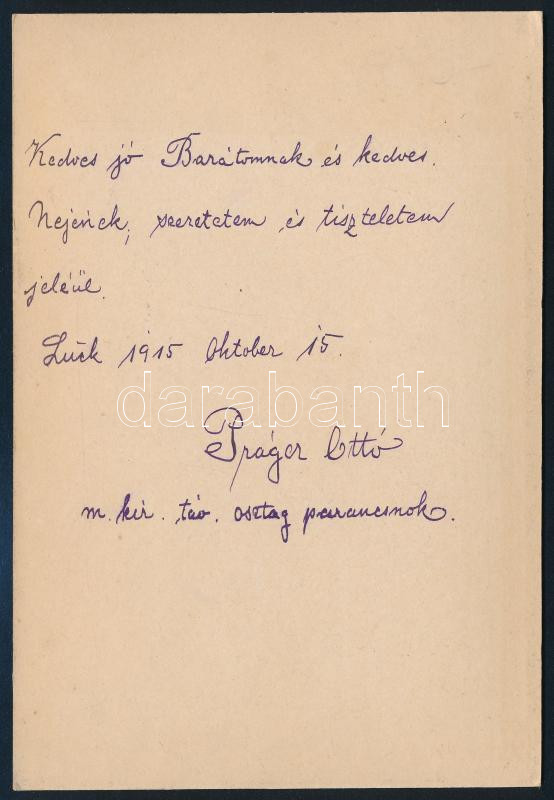 Kedves jó Barátomnak és kedves.
Nejének, szeretetem és tiszteletem
jeléül.
Luck 1915 Oktober 15.
darabanth
Práger Ottó
m. kir. táv. osztag parancsnok.